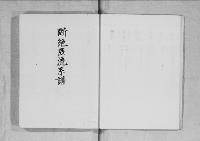 断絶庶流系譜